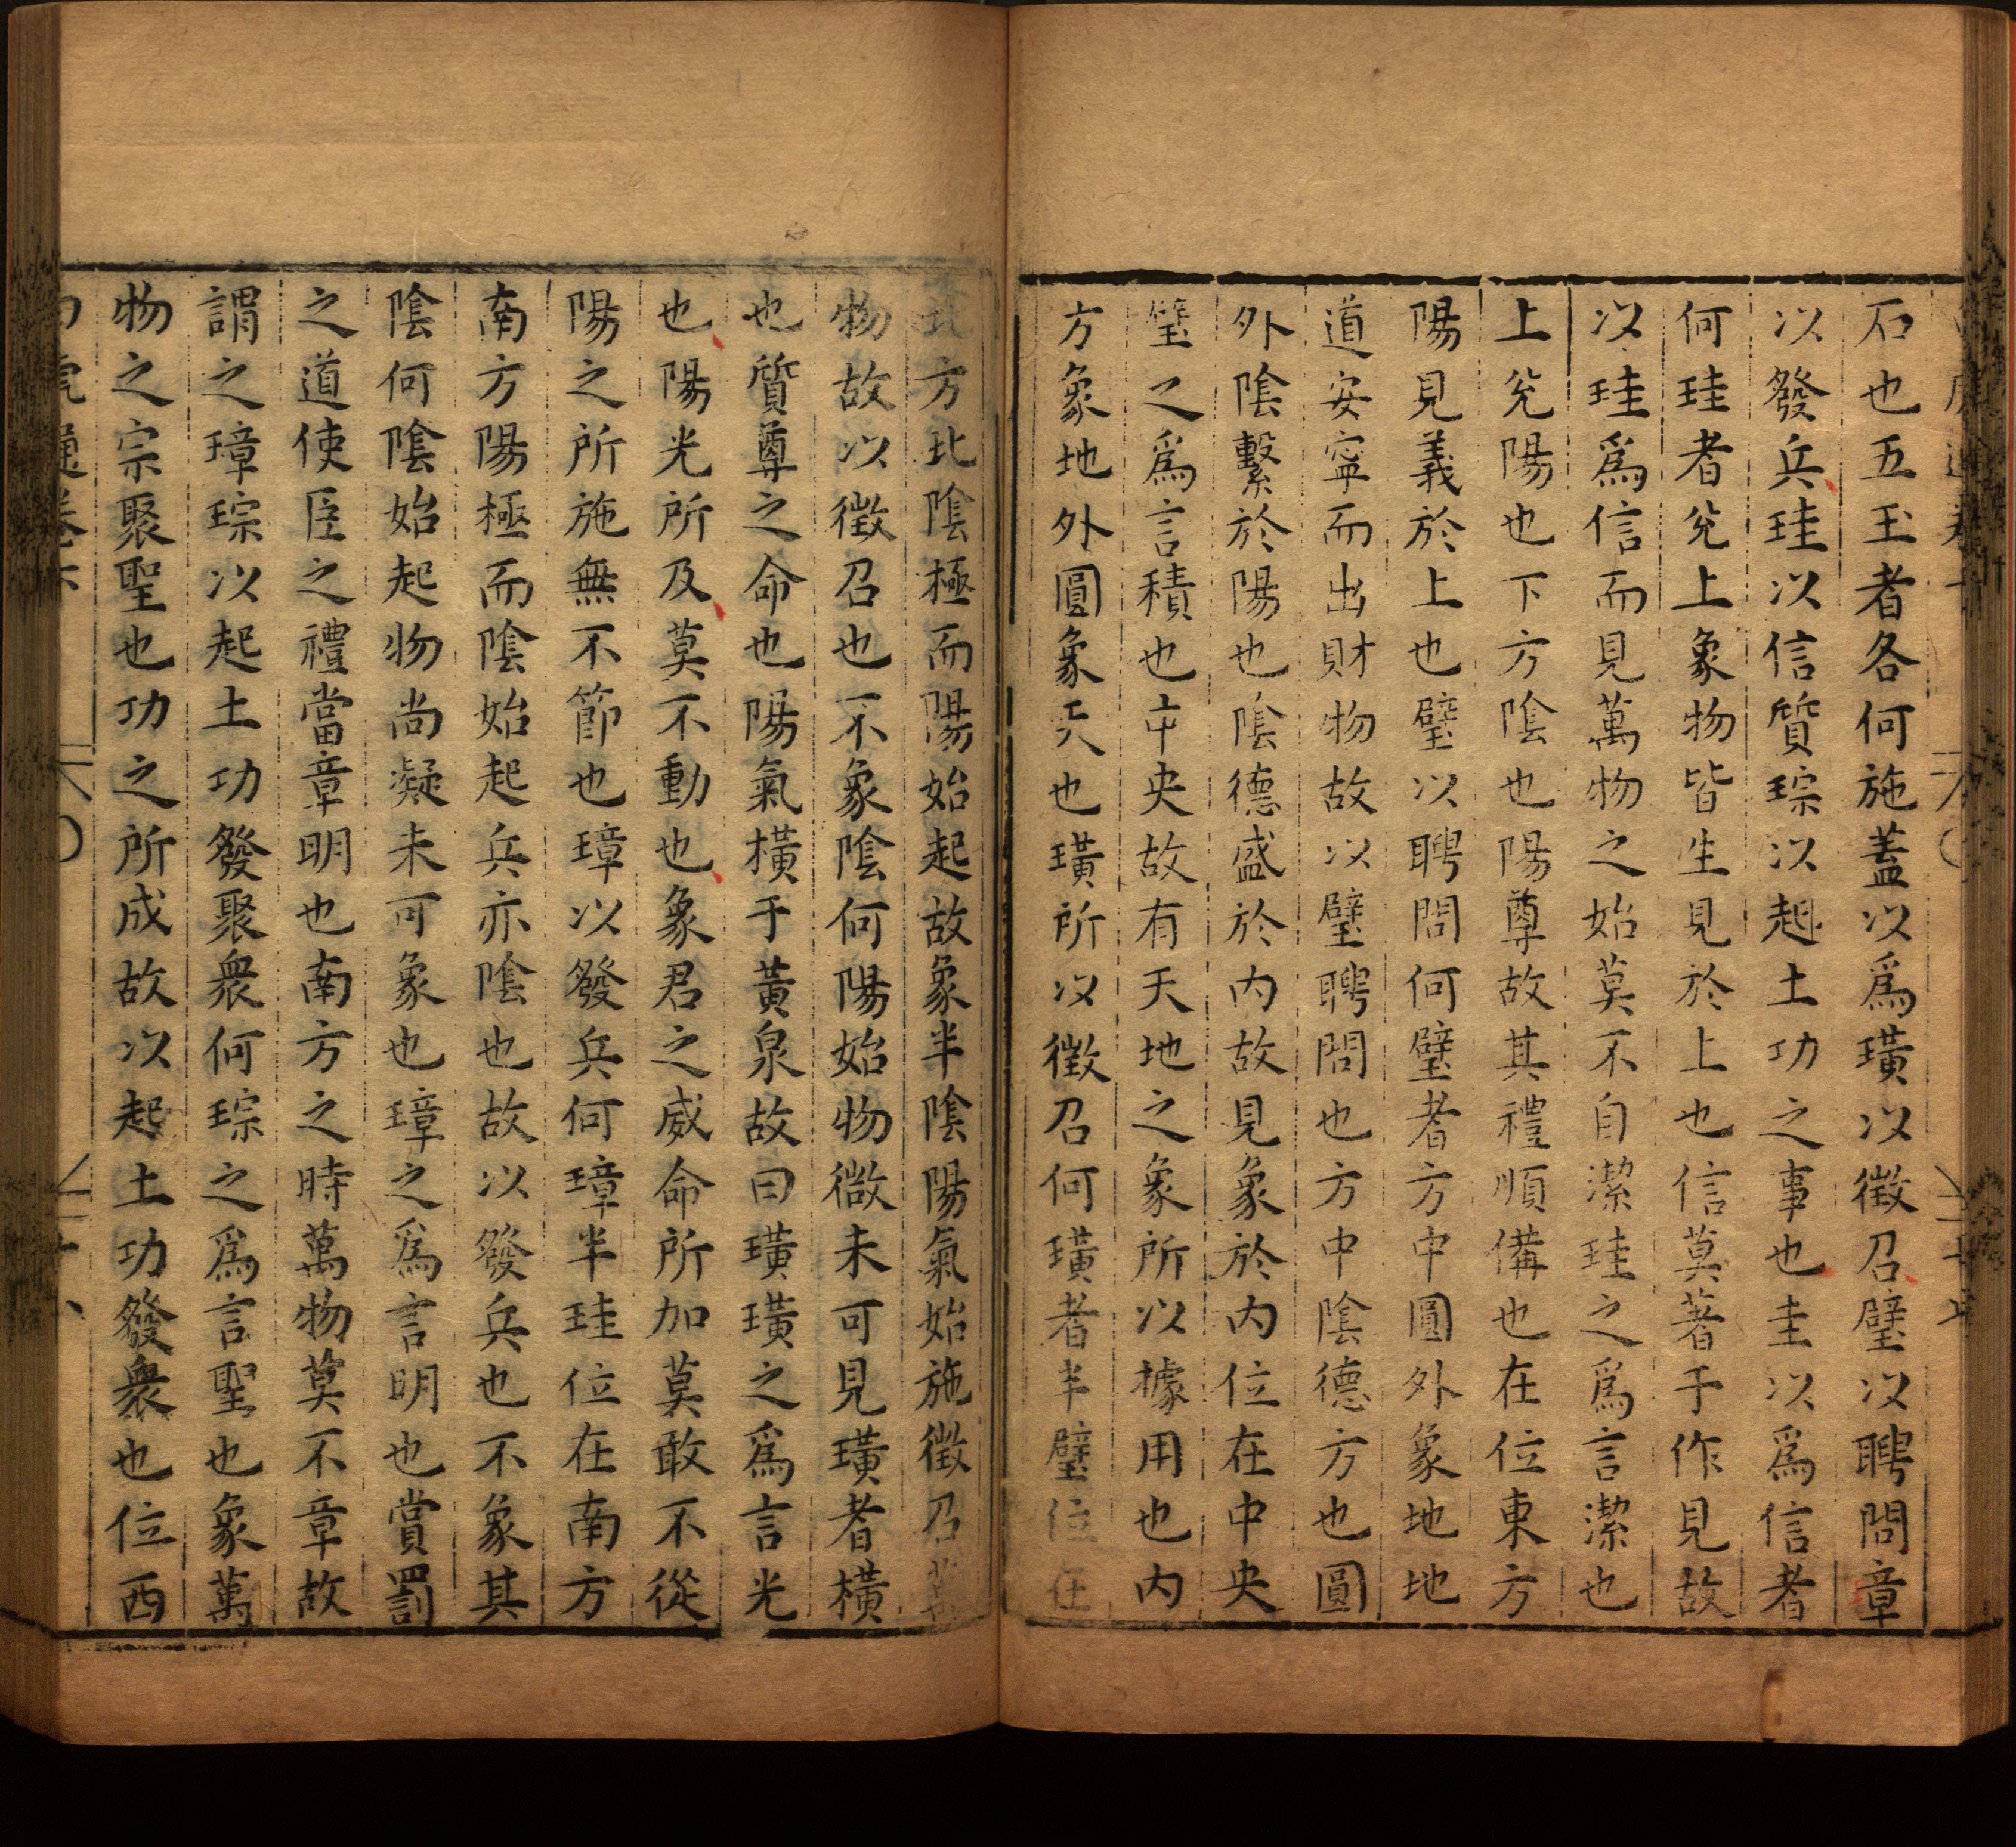 石也五玉者各何施蓋以爲璜以徵召璧以聘問章
以發兵珪以信質琮以起土功之事也圭以爲信者
何珪者兊上象物皆生見於上也信莫著于作見故
以珪爲信而見萬物之始莫不自潔珪之爲言潔也
上兊陽也下方陰也陽尊故其禮順俻也在位東方
陽見義於上也璧以聘問何璧者方中圓外象地地
道安寧而出財物故以璧聘問也方中陰德方也圓
外陰繫於陽也陰德盛於内故見象於内位在中央
璧之爲言積也中央故有天地之象所以據用也内
方象地外圓象天也璜所以徵召何璜者半璧位在
北方北陰極而陽始起故象半陰陽氣始施徵召萬
物故以徵召也不象陰何陽始物微未可見璜者橫
也質尊之命也陽氣橫于黃泉故曰璜璜之爲言光
也陽光所及莫不動也象君之威命所加莫敢不從
陽之所施無不節也璋以發兵何璋半珪位在南方
南方陽極而陰始起兵亦陰也故以發兵也不象其
陰何陰始起物尚凝未可象也璋之爲言明也賞罰
之道使臣之禮當章明也南方之時萬物莫不章故
謂之璋琮以起土功發聚衆何琮之爲言聖也象萬
物之宗聚聖也功之所成故以起土功發衆也位西